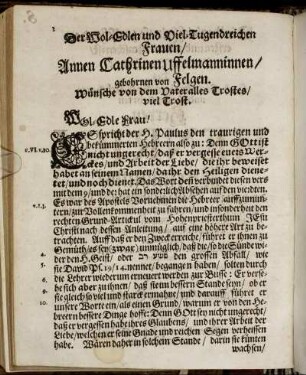 2
Der Wol-Edlen und Viel-Tugendreichen
Frauen/
Annen Cathrinen Uffelmanninnen/
gebohrnen von Felgen.
Wünsche von dem Vater alles Trostes/
viel Trost.
Wol-Edle Frau/
ES spricht der H. Paulus den traurigen und
c.VI.v.10.
bekümmerten Hebreern also zu: Denn GOtt ist
nicht ungerecht/ daß er vergesse eures Wer-
ckes/ und Arbeit der Liebe/ die ihr beweiset
habet an seinem Namen/ da ihr den Heiligen diene-
tet/ und noch dienet. Das Wort denn verbindet diesen vers
mit dem 9/ und 8: hat ein sonderlich Absehen auf den vierdten.
v.1.3.
Es war des Apostels Vornehmen die Hebreer auffzumun-
tern/ zur Vollenkommenheit zu fahren/ und insonderheit den
rechten Grund-Artickul vom Hohenpriesterthum JEsu
Christi nach dessen Anleitung/ auf eine höher Art zu be-
trachten. Auff daß er den Zweck erreiche/ führet er ihnen zu
4.
Gemüth/ es sey (zwar) unmüglich/ daß die/ so die Sünde wi-
der den H. Geist/ oder פשע רב den grossen Abfall/ wie
sie David Ps. 19/14. nennet/ begangen haben/ solten durch
die Lehrer wiederum erneuert werden zur Busse: Er verse-
9.
be sich aber zu ihnen/ daß ihnen bessern Stande seyn/ ob er
sie gleich so viel und starck ermahne/ und darauff führet er
10.
unsere Worte ein/ als einen Grund/ warum er von den He-
breern bessere Dinge hoffe: Denn GOtt sey nicht ungerecht/
daß er vergessen habe ihres Glaubens/ und ihrer Arbeit der
Liebe/ welchen er seine Gnade und reichen Segen verheissen
habe. Wären daher in solchem Stande/ darin sie künten
wachsen/